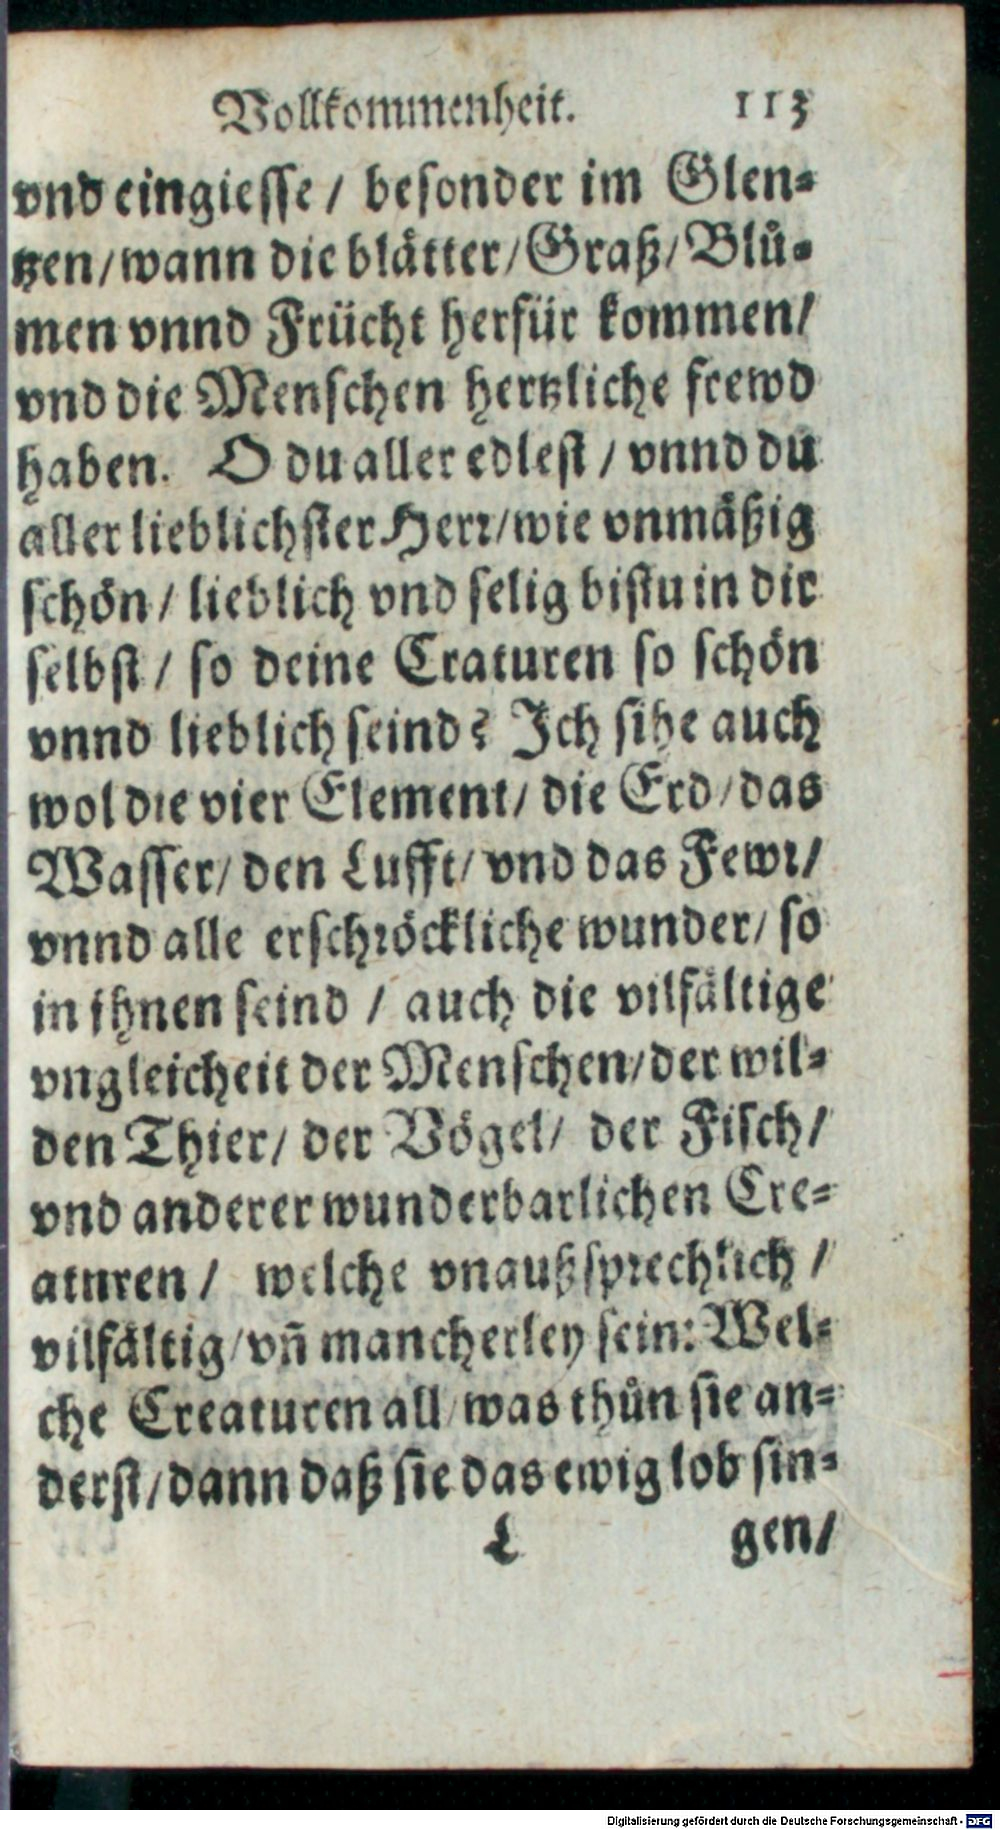 Vollkommenheit. 113
vnd eingiesse / besonder im Glen-
tzen / wann die blätter / Graß / Blů-
men vnnd Frücht herfür kommen /
vnd die Menschen hertzliche frewd
haben. O du aller edlest / vnnd du
aller lieblichster Herr / wie vnmäßig
schön / lieblich vnd selig bistu in dir
selbst / so deine Craturen so schön
vnnd lieblich seind? Ich sihe auch
wol die vier Element / die Erd / das
Wasser / den Lufft / vnd das Fewr /
vnnd alle erschröckliche wunder / so
in ihnen seind / auch die vilfältige
vngleicheit der Menschen / der wil-
den Thier / der Vögel / der Fisch /
vnd anderer wunderbarlichen Cre-
atnren / welche vnaußsprechlich /
vilfältig / vñ mancherley sein: Wel-
che Creaturen all / was thůn sie an-
derst / dann daß sie das ewig lob sin-
L gen /
Digitalisierung gefördert durch die Deutsche Forschungsgemeinschaft - DFG